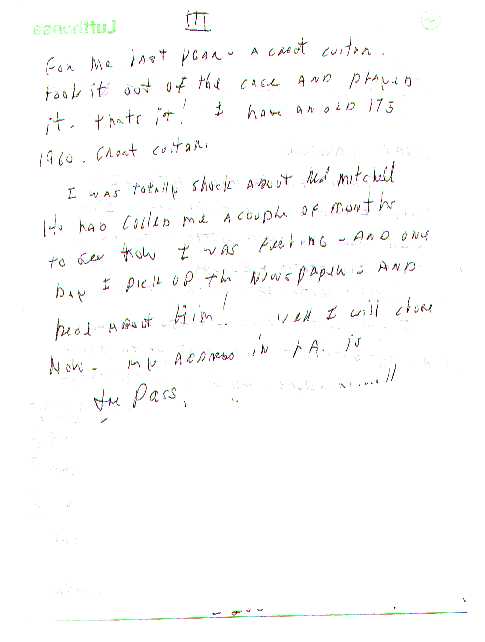 III
For me last year - a great guitar.
took it out of the case AND played
it. thats it! I have an old 175
1960. Great guitar.
I was totally shock about Red Mitchell
He had called me a couple of months
to see how I was feeling - AND one
Day I pick up the Newspaper - AND
read about Him! Well I will close
Now. my Address in LA. is
Joe Pass.